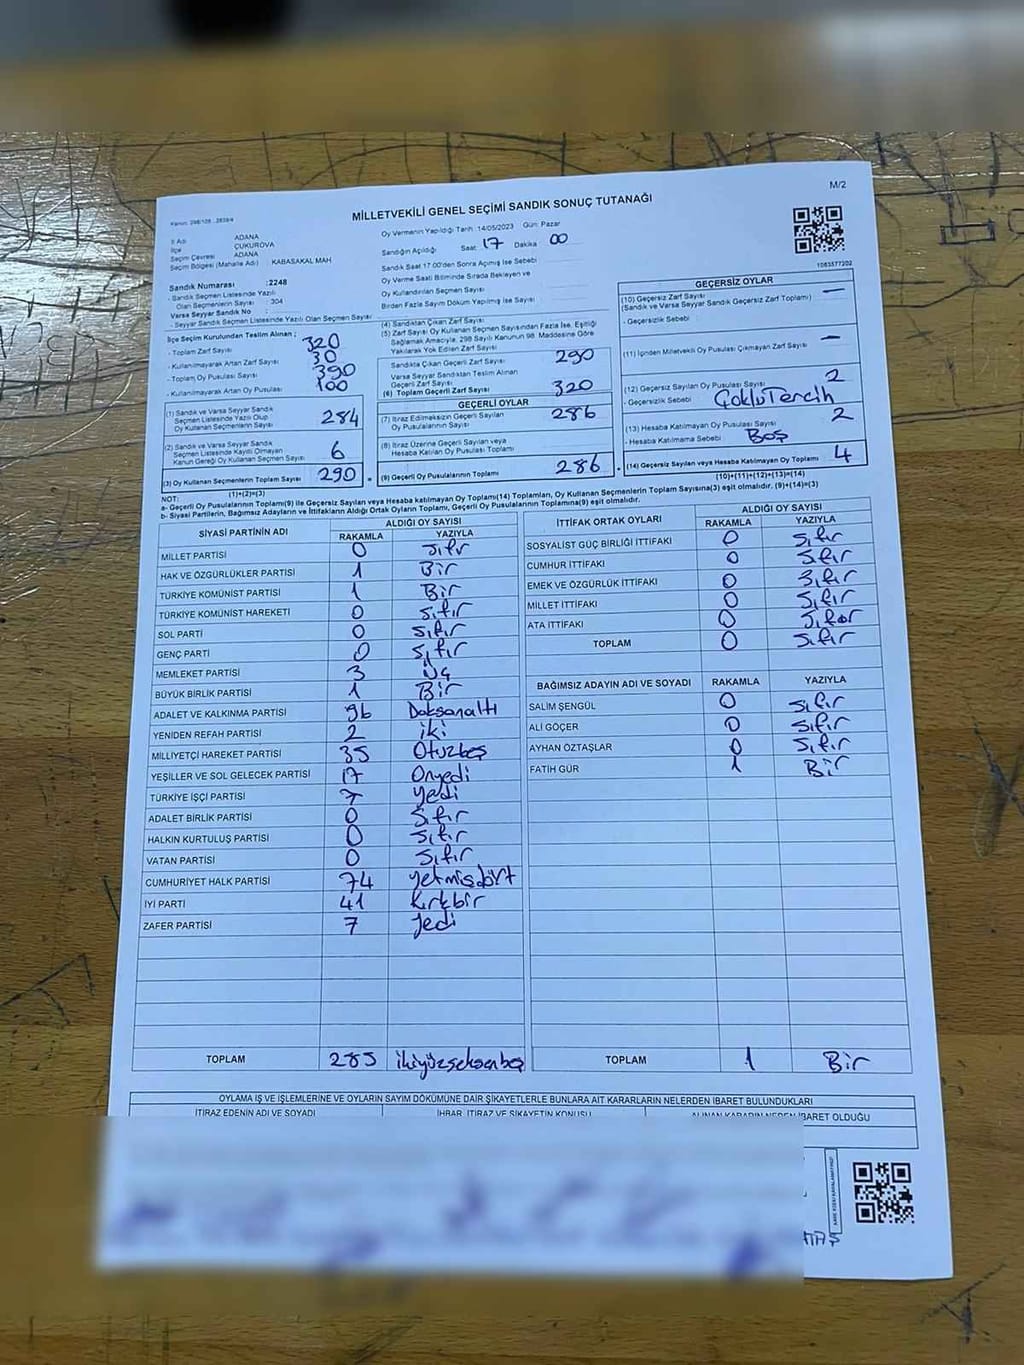 M/2
MİLLETVEKİLİ GENEL SEÇİMİ SANDIK SONUÇ TUTANAĞI
İl Adı ADANA
İlçe ÇUKUROVA
Seçim Çevresi ADANA
Seçim Bölgesi (Mahalle Adı) KABASAKAL MAH
Oy Vermenin Yapıldığı Tarih 14/05/2023 Gün: Pazar
Sandığın Açıldığı Saat 17 Dakika 00
Sandık Saat 17.00'den Sonra Açılmış İse Sebebi
Oy Verme Saati Bitiminde Sırada Bekleyen ve
Oy Kullandırılan Seçmen Sayısı
Birden Fazla Sayım Döküm Yapılmış İse Sayısı
1083577202
Sandık Numarası :2248
- Sandık Seçmen Listesinde Yazılı
Olan Seçmenlerin Sayısı : 304
Varsa Seyyar Sandık No :
- Seyyar Sandık Seçmen Listesinde Yazılı Olan Seçmen Sayısı
İlçe Seçim Kurulundan Teslim Alınan ;
- Toplam Zarf Sayısı 320
- Kullanılmayarak Artan Zarf Sayısı 30
- Toplam Oy Pusulası Sayısı 390
- Kullanılmayarak Artan Oy Pusulası 100
(1) Sandık ve Varsa Seyyar Sandık
Seçmen Listesinde Yazılı Olup
Oy Kullanan Seçmenlerin Sayısı 284
(2) Sandık ve Varsa Seyyar Sandık
Seçmen Listesinde Kayıtlı Olmayan
Kanun Gereği Oy Kullanan Seçmen Sayısı 6
(3) Oy Kullanan Seçmenlerin Toplam Sayısı 290
(1)+(2)=(3)
(4) Sandıktan Çıkan Zarf Sayısı
(5) Zarf Sayısı Oy Kullanan Seçmen Sayısından Fazla İse, Eşitliği
Sağlamak Amacıyla, 298 Sayılı Kanunun 98. Maddesine Göre
Yakılarak Yok Edilen Zarf Sayısı
Sandıkta Çıkan Geçerli Zarf Sayısı 290
Varsa Seyyar Sandıktan Teslim Alınan
Geçerli Zarf Sayısı
(6) Toplam Geçerli Zarf Sayısı 320
GEÇERLİ OYLAR
(7) İtiraz Edilmeksizin Geçerli Sayılan
Oy Pusulasının Sayısı 286
(8) İtiraz Üzerine Geçerli Sayılan veya
Hesaba Katılan Oy Pusulası Toplamı
(9) Geçerli Oy Pusulalarının Toplamı 286
GEÇERSİZ OYLAR
(10) Geçersiz Zarf Sayısı
(Sandık ve Varsa Seyyar Sandık Geçersiz Zarf Toplamı) —
- Geçersizlik Sebebi
(11) İçinden Milletvekili Oy Pusulası Çıkmayan Zarf Sayısı —
(12) Geçersiz Sayılan Oy Pusulası Sayısı 2
- Geçersizlik Sebebi Çoklu Tercih
(13) Hesaba Katılmayan Oy Pusulası Sayısı 2
- Hesaba Katılmama Sebebi Boş
(14) Geçersiz Sayılan veya Hesaba Katılmayan Oy Toplamı 4
(10)+(11)+(12)+(13)=(14)
NOT:
a- Geçerli Oy Pusulalarının Toplamı(9) ile Geçersiz Sayılan veya Hesaba katılmayan Oy Toplamı(14) Toplamları, Oy Kullanan Seçmenlerin Toplam Sayısına(3) eşit olmalıdır. (9)+(14)=(3)
b- Siyasi Partilerin, Bağımsız Adayların ve İttifakların Aldığı Ortak Oyların Toplamı, Geçerli Oy Pusulalarının Toplamına(9) eşit olmalıdır.
SİYASİ PARTİNİN ADI ALDIĞI OY SAYISI
RAKAMLA YAZIYLA
MİLLET PARTİSİ 0 Sıfır
HAK VE ÖZGÜRLÜKLER PARTİSİ 1 Bir
TÜRKİYE KOMÜNİST PARTİSİ 1 Bir
TÜRKİYE KOMÜNİST HAREKETİ 0 Sıfır
SOL PARTİ 0 Sıfır
GENÇ PARTİ 0 Sıfır
MEMLEKET PARTİSİ 3 Üç
BÜYÜK BİRLİK PARTİSİ 1 Bir
ADALET VE KALKINMA PARTİSİ 96 Doksanaltı
YENİDEN REFAH PARTİSİ 2 iki
MİLLİYETÇİ HAREKET PARTİSİ 35 Otuzbeş
YEŞİLLER VE SOL GELECEK PARTİSİ 17 Onyedi
TÜRKİYE İŞÇİ PARTİSİ 7 Yedi
ADALET BİRLİK PARTİSİ 0 Sıfır
HALKIN KURTULUŞ PARTİSİ 0 Sıfır
VATAN PARTİSİ 0 Sıfır
CUMHURİYET HALK PARTİSİ 74 Yetmişdört
İYİ PARTİ 41 Kırkbir
ZAFER PARTİSİ 7 Yedi
TOPLAM 285 ikiyüzseksenbeş
İTTİFAK ORTAK OYLARI ALDIĞI OY SAYISI
RAKAMLA YAZIYLA
SOSYALİST GÜÇ BİRLİĞİ İTTİFAKI 0 Sıfır
CUMHUR İTTİFAKI 0 Sıfır
EMEK VE ÖZGÜRLÜK İTTİFAKI 0 Sıfır
MİLLET İTTİFAKI 0 Sıfır
ATA İTTİFAKI 0 Sıfır
TOPLAM 0 Sıfır
BAĞIMSIZ ADAYIN ADI VE SOYADI RAKAMLA YAZIYLA
SALİM ŞENGÜL 0 Sıfır
ALİ GÖÇER 0 Sıfır
AYHAN ÖZTAŞLAR 0 Sıfır
FATİH GÜR 1 Bir
TOPLAM 1 Bir
OYLAMA İŞ VE İŞLEMLERİNE VE OYLARIN SAYIM DÖKÜMÜNE DAİR ŞİKAYETLERLE BUNLARA AİT KARARLARIN NELERDEN İBARET BULUNDUKLARI
İTİRAZ EDENİN ADI VE SOYADI İHBAR, İTİRAZ VE ŞİKAYETİN KONUSU ALINAN KARARIN NEDEN İBARET OLDUĞU